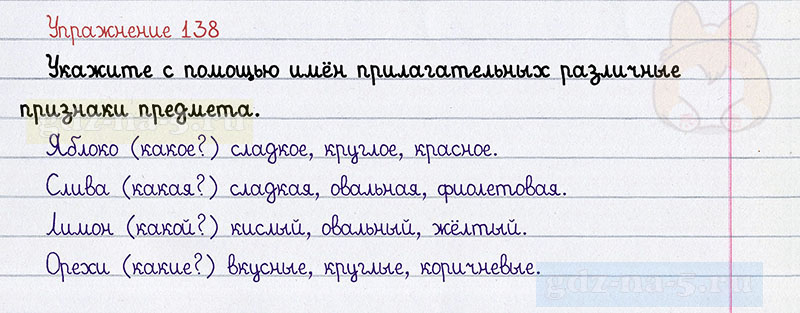 Упражнение 138
Укажите с помощью имён прилагательных различные
признаки предмета.
Яблоко (какое?) сладкое, круглое, красное.
Слива (какая?) сладкая, овальная, фиолетовая.
Лимон (какой?) кислый, овальный, жёлтый.
Орехи (какие?) вкусные, круглые, коричневые.
gdz-na-5.ru
gdz-na-5.ru